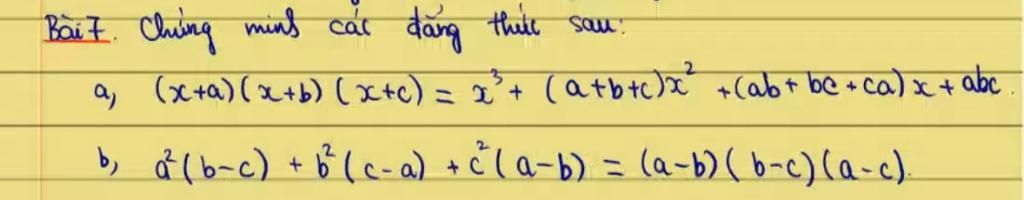 Bài 7. Chứng minh các đẳng thức sau:
a, (x+a)(x+b)(x+c) = x³ + (a+b+c)x² + (ab+bc+ca)x + abc.
b, a²(b-c) + b²(c-a) + c²(a-b) = (a-b)(b-c)(a-c).